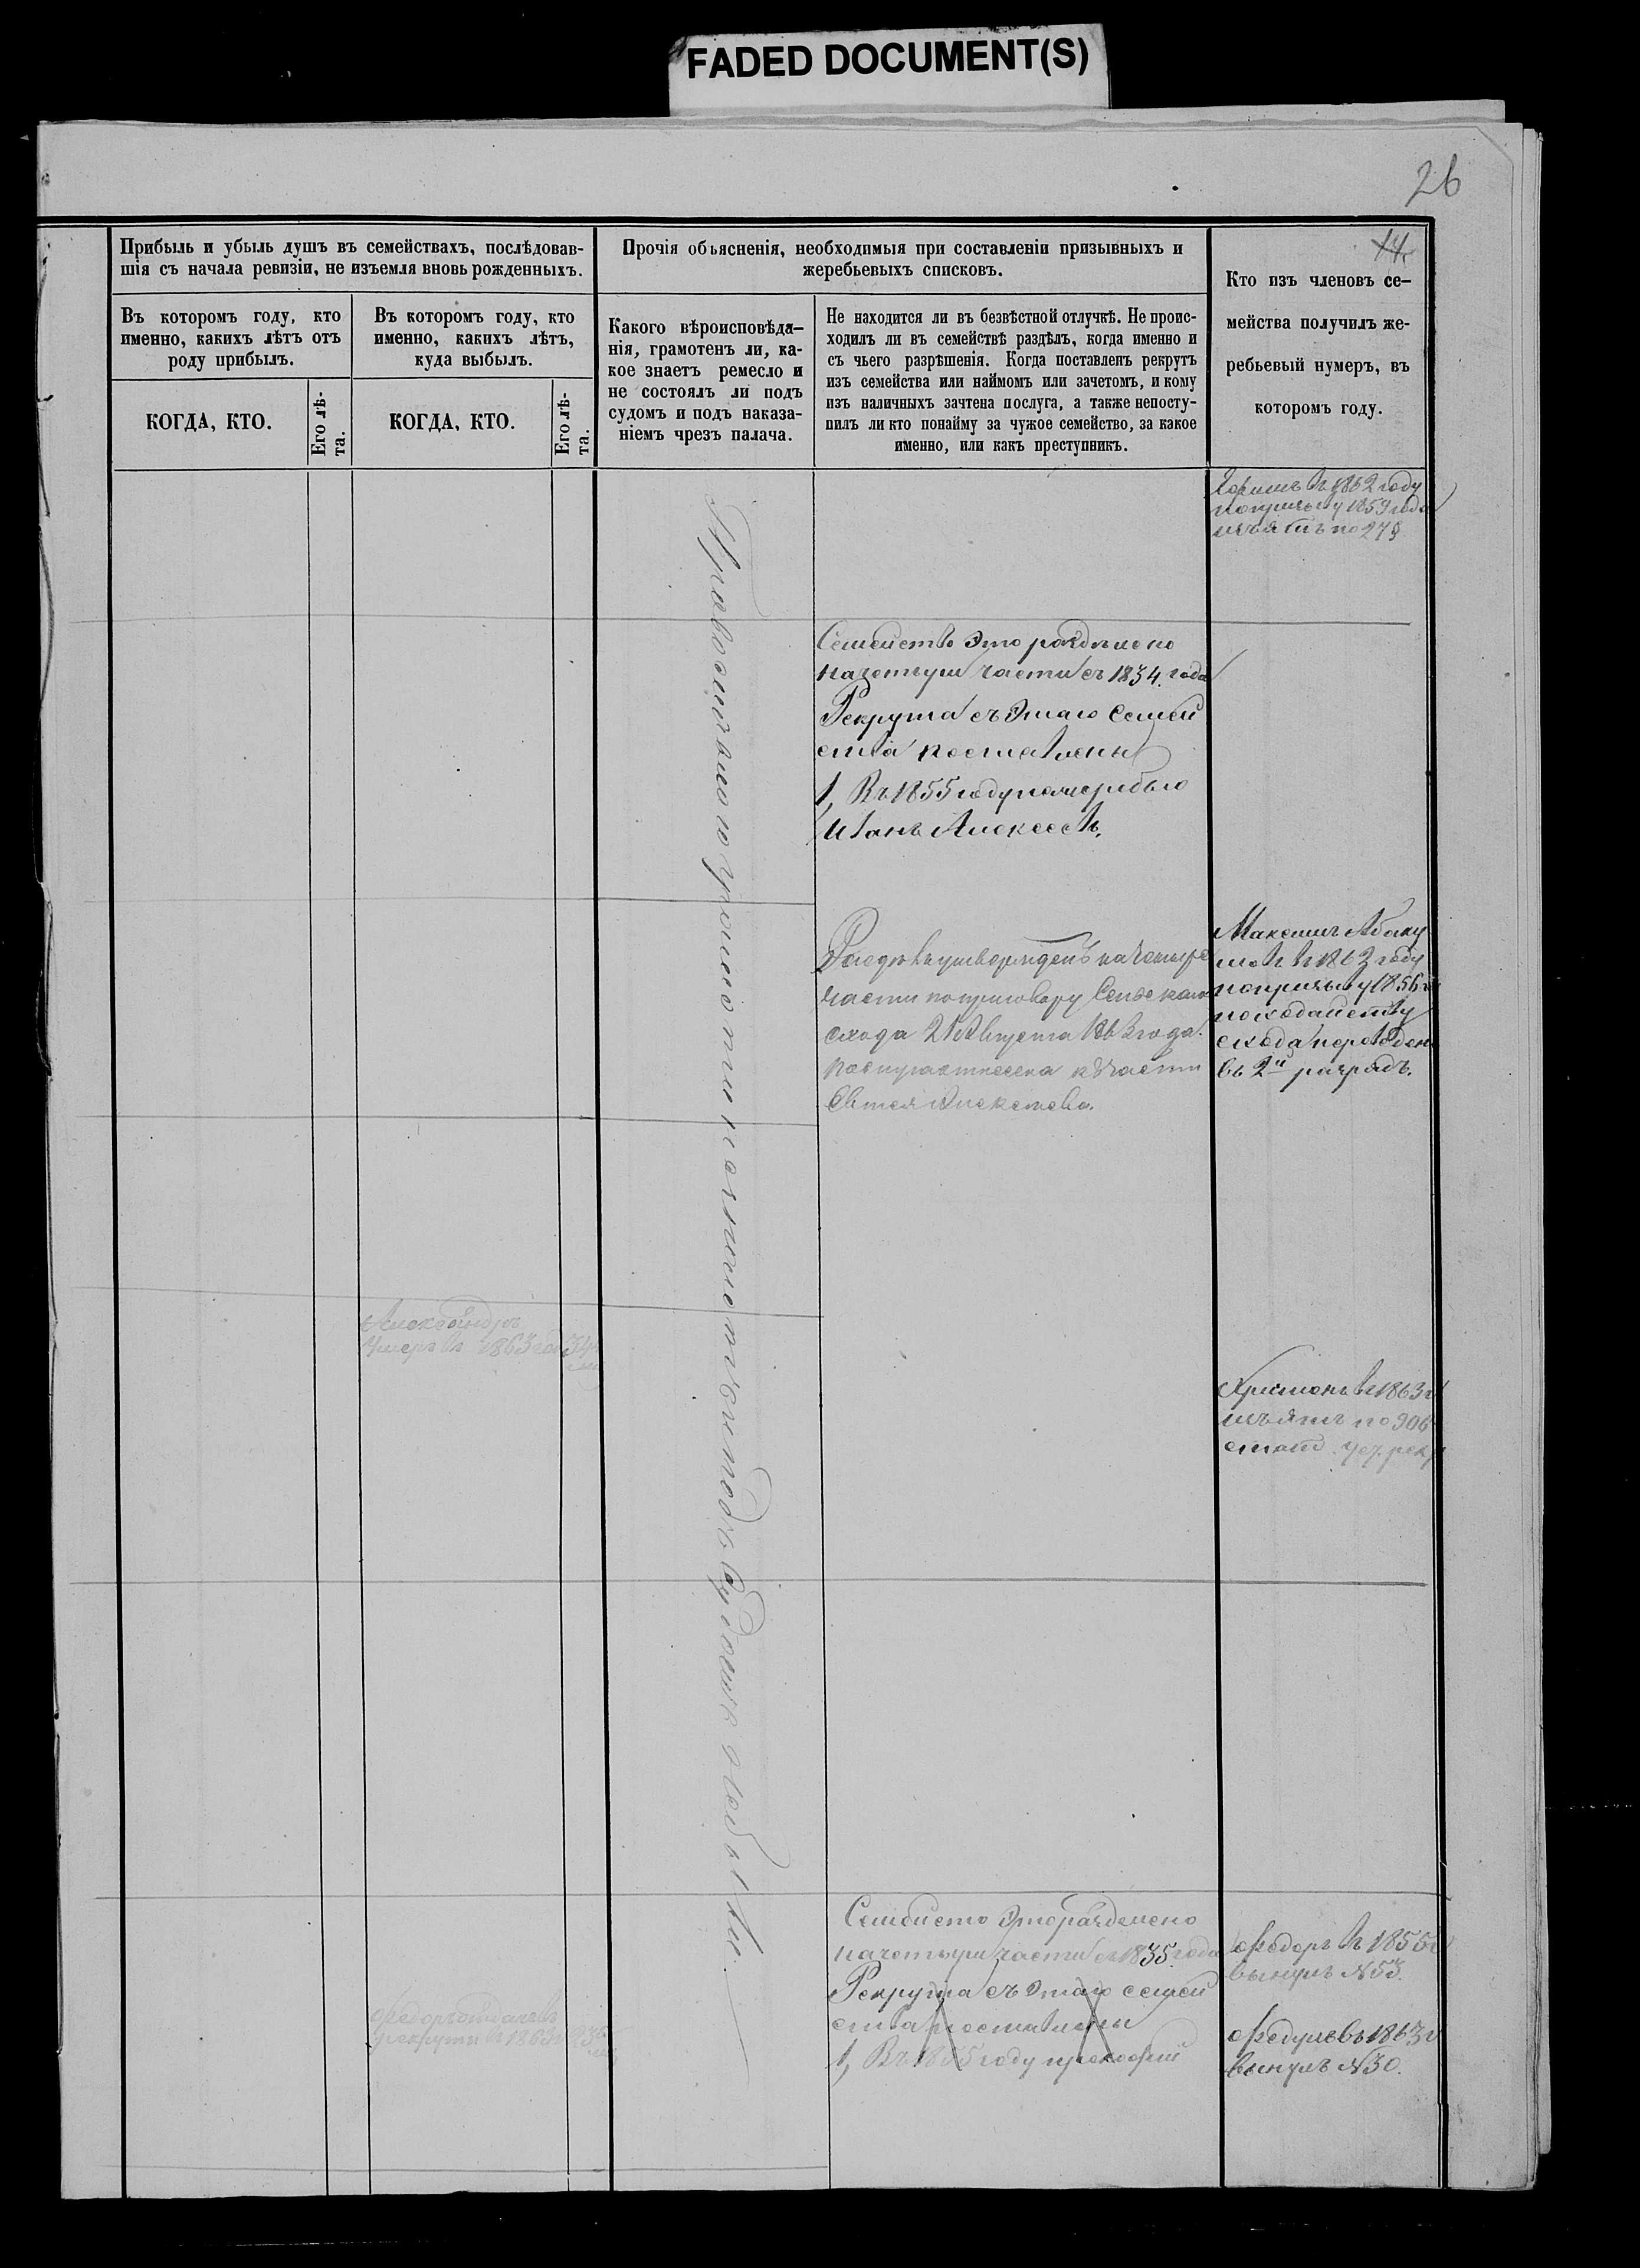 FADED DOCUMENT(S)
26
14
Прибыль и убыль душъ въ семействахъ, послѣдовав-
шія съ начала ревизіи, не изъемля вновь рожденныхъ.
Прочія объясненія, необходимыя при составленіи призывныхъ и
жеребьевыхъ списковъ.
Кто изъ членовъ се-
мейства получилъ же-
ребьевый нумеръ, въ
которомъ году.
Въ которомъ году, кто
именно, какихъ лѣтъ отъ
роду прибылъ.
Въ которомъ году, кто
именно, какихъ лѣтъ,
куда выбылъ.
Какого вѣроисповѣда-
нія, грамотенъ ли, ка-
кое знаетъ ремесло и
не состоялъ ли подъ
судомъ и подъ наказа-
ніемъ чрезъ палача.
Не находится ли въ безвѣстной отлучкѣ. Не проис-
ходилъ ли въ семействѣ раздѣлъ, когда именно и
съ чьего разрѣшенія. Когда поставленъ рекрутъ
изъ семейства или наймомъ или зачетомъ, и кому
изъ наличныхъ зачтена послуга, а также непосту-
пилъ ли кто понайму за чужое семейство, за какое
именно, или какъ преступникъ.
КОГДА, КТО.
Его лѣ-
та.
КОГДА, КТО.
Его лѣ-
та.
въ 1862 году
по призыву 1859 года
изъятъ по 278
Семейство это раздѣлено
на четыри части съ 1834. года
Рекрута съ этаго семей
ства поставлены
1, Въ 1855 году по жеребью
Иванъ Алексеевъ.
Раздѣлъ утвержденъ на четыре
части по приговору Сельскаго
схода 21 Августа 1863 года.
к части
Евтея Алексеева.
Максимъ Абаку
мовъ въ 1863 году
по призыву 1856 г
по ходатайству
схода переведенъ
въ 2й разрядъ.
Александръ
Умеръ въ 1863 году 34
въ 1863 г
изъятъ по 306
стать. уст. рекр
Православнаго грамоте не подъ судомъ не
Семейсто это раздѣлено
на четыри части съ 1835 года
Рекрута съ этаго семей
ства поставлены
1, Въ 1855 году прокофий
Федоръ въ 1855 г
вынулъ №53.
Федулъ въ 1863 г
вынулъ №30.
Федоръ отданъ въ
рекруты въ 1863